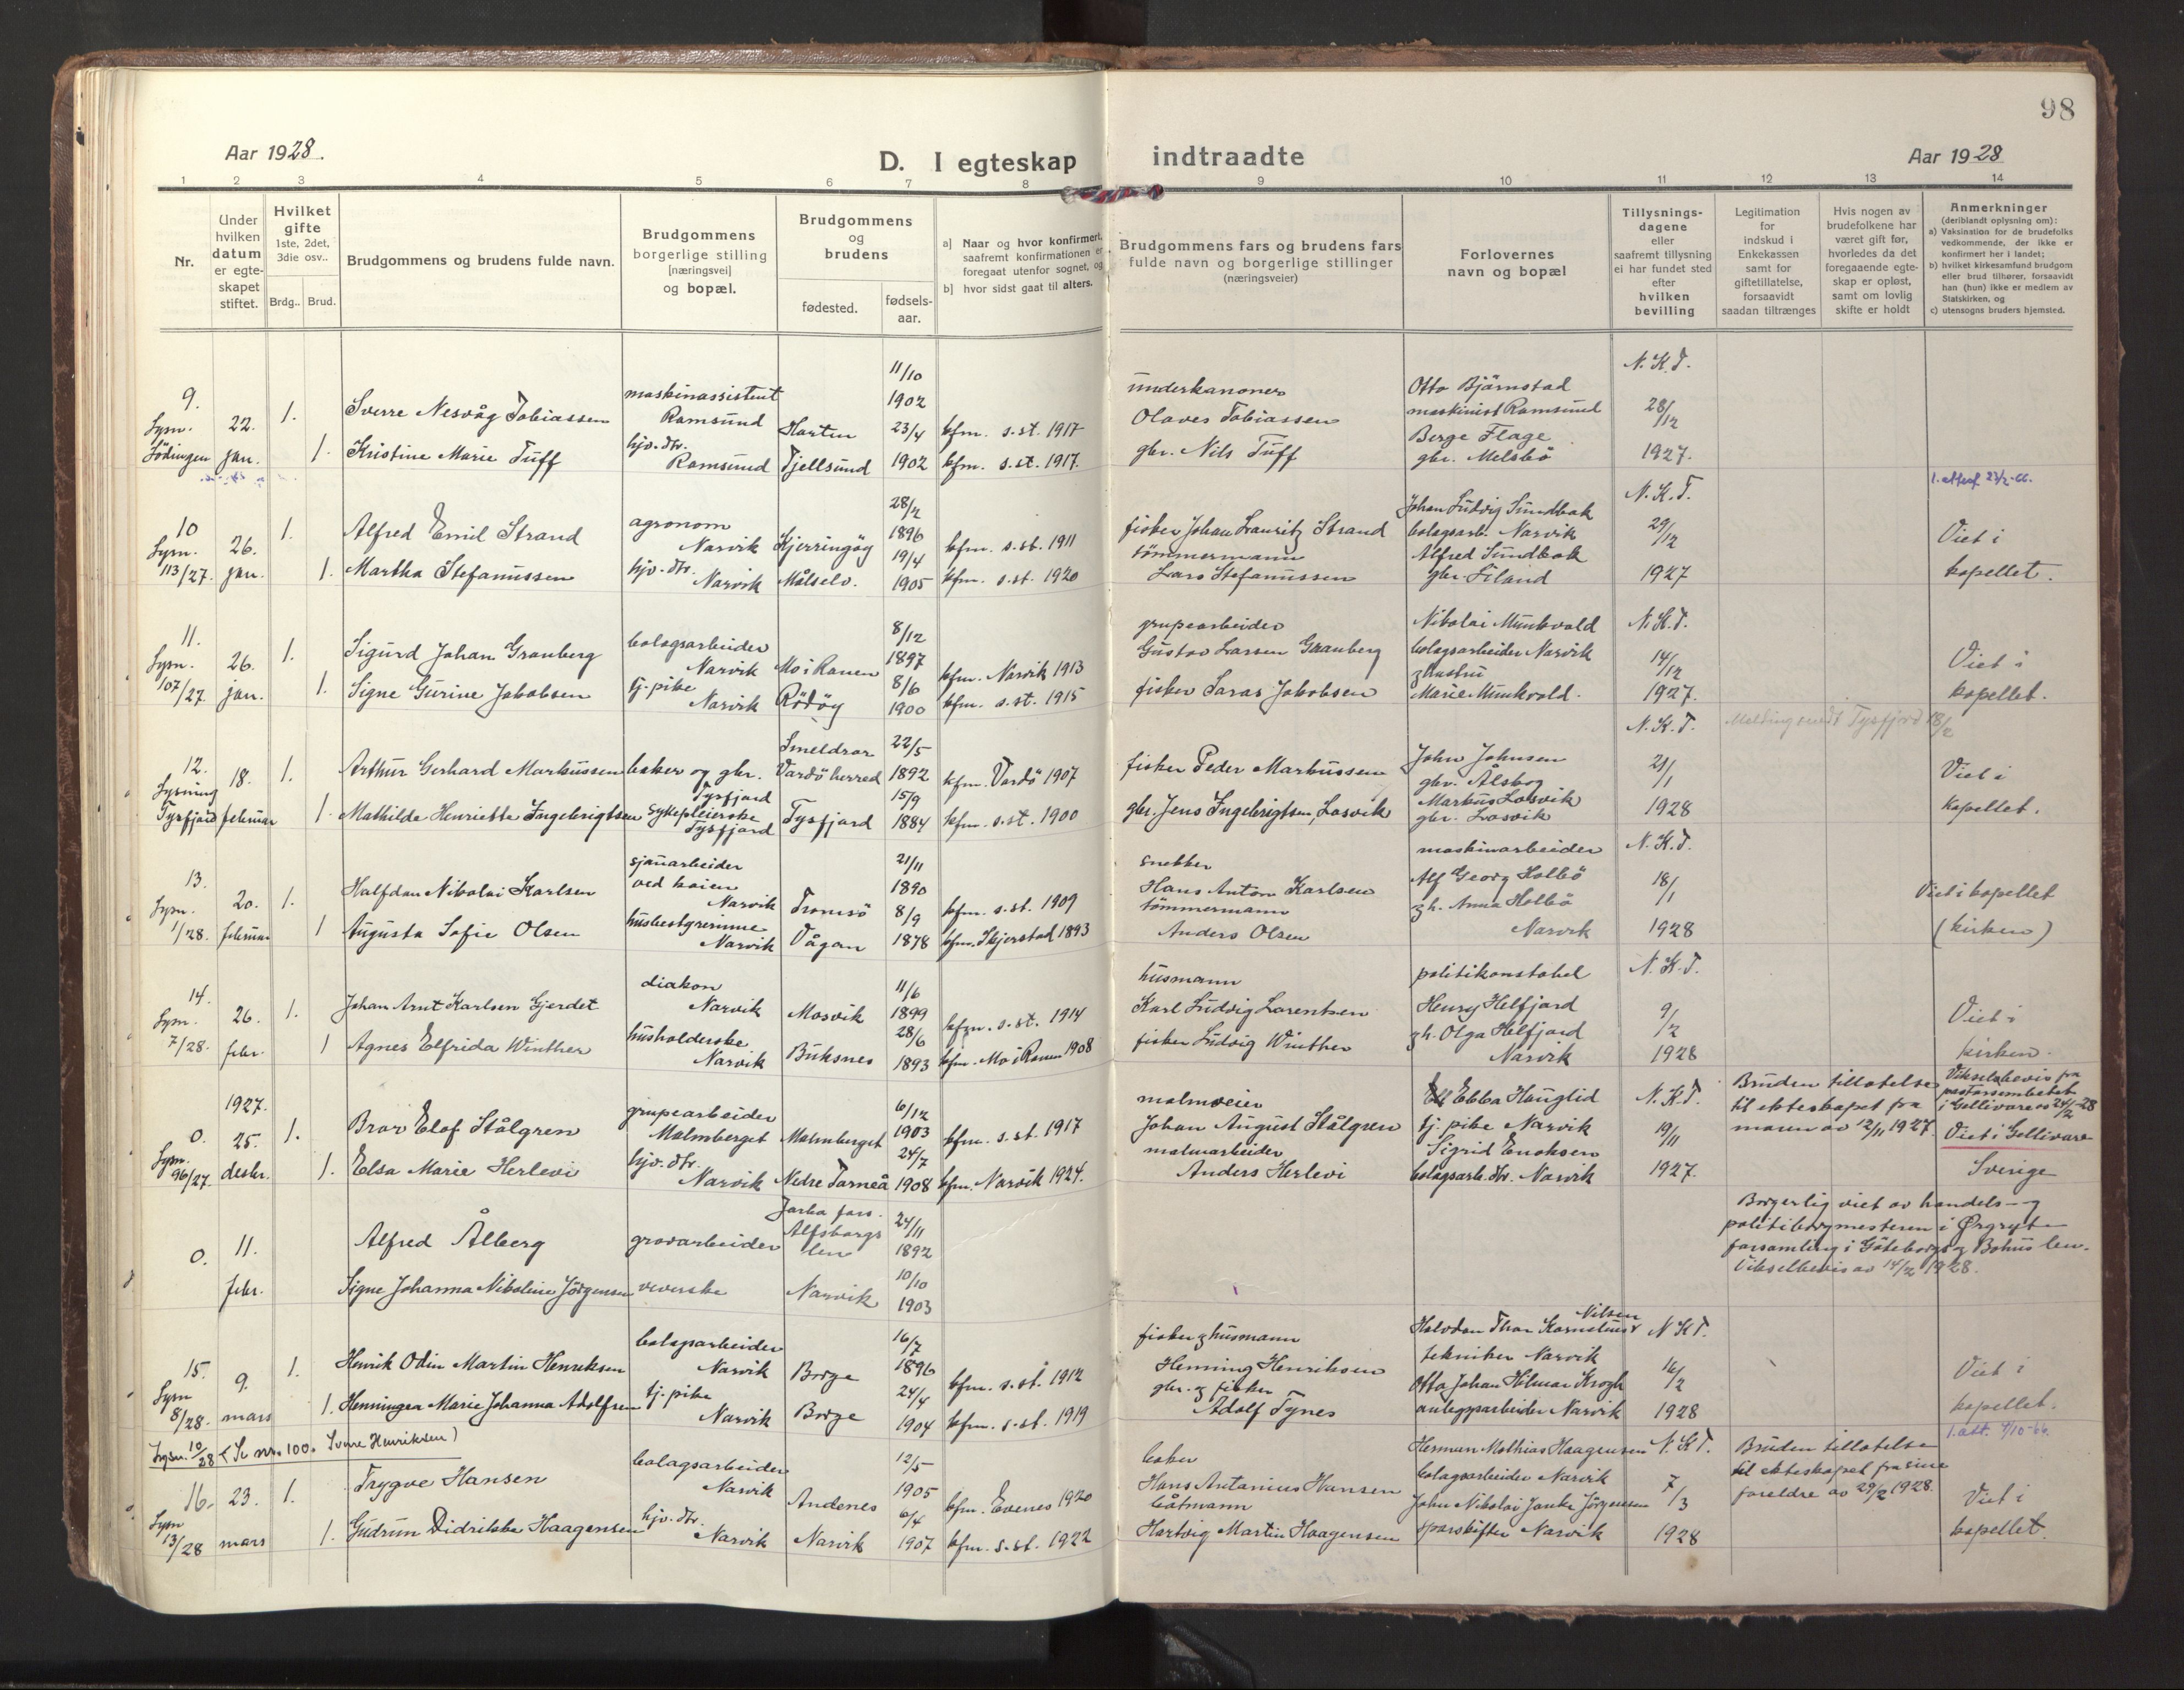 98
Aar 1928.
D. I egteskap indtraadte
Aar 1928
1 2 3 4 5 6 7 8 9 10 11 12 13 14
Nr.
Under
hvilken
datum
er egte-
skapet
stiftet.
Hvilket
gifte
1ste, 2det,
3die osv..
Brdg..
Brud.
Brudgommens og brudens fulde navn.
Brudgommens
borgerlige stilling
[næringsvei]
og bopæl.
Brudgommens
og
brudens
fødested.
fødsels-
aar.
a] Naar og hvor konfirmert,
saafremt konfirmationen er
foregaat utenfor sognet, og
b] hvor sidst gaat til alters.
Brudgommens fars og brudens fars
fulde navn og borgerlige stillinger
(næringsveier)
Forlovernes
navn og bopæl
Tillysnings-
dagene
eller
saafremt tillysning
ei har fundet sted
efter
hvilken
bevilling
Legitimation
for
indskud i
Enkekassen
samt for
giftetillatelse,
forsaavidt
saadan tiltrænges
Hvis nogen av
brudefolkene har
været gift før,
hvorledes da det
foregaaende egte-
skap er opløst,
samt om lovlig
skifte er holdt
Anmerkninger
(deriblandt oplysning om):
a) Vaksination for de brudefolks
vedkommende, der ikke er
konfirmert her i landet;
b) hvilket kirkesamfund brudgom
eller brud tilhører, forsaavidt
han (hun) ikke er medlem av
Statskirken, og
c) utensogns bruders hjemsted.
9.
Lysn.
Lödingen
22.
jan.
1.
1.
Sverre Nesvåg Tobiassen
Kristine Marie Tuff
maskinassistent
Ramsund
hjv. dtr.
Ramsund
Fjellsund
11/10
1902
23/4
1902
kfm. s.st. 1917
kfm. s.st. 1917.
underkanoner
Olaves Tobiassen
gbr. Nils Tuff
Otto Bjørnstad
maskinist Ramsund
Berge Flage
gbr. Melsbö
N.K.T.
28/12
1927.
10
Lysn.
113/27.
26.
jan.
1.
1.
Alfred Emil Strand
Martha Stefanussen
agronom
Narvik
hjv. dtr.
Narvik
Kjerringöy
Målselv.
28/2
1896
19/4
1905
kfm. s.st. 1911
kfm. s.st. 1920
fisker Johan Lauritz Strand
tömmermann
Lars Stefanussen
Johan Ludvig Sundbak
bolagsarb. Narvik
Alfred Sundbak
gbr. Liland
N.K.T.
29/12
1927
1. attest 23/2-66.
Viet i
kapellet.
11.
Lysn.
107/27.
26.
jan.
1.
1.
Sigurd Johan Granberg
Signe Gurine Jakobsen
bolagsarbeider
Narvik
tj. pike
Narvik
Mo i Ranen
Rödöy
8/12
1897
8/6
1900
kfm. Narvik 1913
kfm. s.st. 1915
grupearbeider
Gustav Larsen Granberg
fisker Laras Jakobsen
Nikolai Munkvold
bolagsarbeider Narvik
og hustru
Marie Munkvold.
N.K.T.
14/12
1927.
Viet i
kapellet.
12.
Lysning
Tysfjord
18.
februar
1.
1.
Arthur Gerhard Markussen
Mathilde Henriette Ingebrigtsen
baker og gbr.
Tysfjord
sykepleierske
Tysfjord
Smeldror
Vardö herred
Tysfjord
22/5
1892
15/9
1884
kfm. Vardö 1907
kfm. s.st. 1900
fisker Peder Markussen
gbr. Jens Ingebrigtsen, Losvik
John Johnsen
gbr. Ålsbog
Markus Losvik
gbr. Losvik
N.K.T.
21/1
1928
Melding sendt Tysfjord 18/2
Viet i
kapellet.
13.
Lysn.
1/28.
20.
februar
1.
1
Halfdan Nikolai Karlsen
Augusta Sofie Olsen
sjauarbeider
ved kaien
Narvik
husbestyrerinne
Narvik
Tromsö
Vågan
21/11
1890
8/9
1878
kfm. s.st. 1909
kfm. Skjerstad 1893
snekker
Hans Anton Karlsen
tömmermann
Anders Olsen
maskinarbeider
Alf Georg Holbö
og h. Anna Holbö
Narvik
N.K.T.
18/1
1928
Viet i kapellet
(kirken)
14.
Lysn.
7/28.
26.
febr.
1.
1
Johan Arnt Karlsen Gjerdet
Agnes Elfrida Winther
diakon
Narvik
husholderske
Narvik
Mosvik
Buksnes
11/6
1899
28/6
1893
kfm. s.st. 1914
kfm. Mo i Ranen 1908
husmann
Karl Ludvig Lorentsen
fisker Ludvig Winther
politikonstabel
Henry Helfjord
og h. Olga Helfjord
Narvik
N.K.T.
9/2
1928
Viet i
kirken.
1927.
0.
Lysn.
96/27.
25.
desbr.
1.
1.
Bror Elof Stålgren
Elsa Marie Herlevi
grupearbeider
Malmberget
hjv. dtr.
Narvik
Malmberget
Nedre Torneå
6/12
1903
24/7
1908
kfm. s.st. 1917
kfm. Narvik 1924.
malmveier
Johan August Stålgren
malmarbeider
Anders Herlevi
Ebba Hauglid
tj. pike Narvik
Sigrid Enoksen
bolagsarb. dtr. Narvik
N.K.T.
19/11
1927.
Bruden tillatelse
til ekteskapet fra
moren av 12/11 1927.
Vikselsbevis fra
pastorsembetet
i Gellivare av 24/2-28
Viet i Gellivare
Sverige
0.
11.
febr.
Alfred Ålberg
Signe Johanna Nikoline Jörgensen
grovarbeider
veverske
Alfsborgs
len
Narvik
24/11
1892
10/10
1903
Borgerlig viet av handels- og
politiborgmesteren i Ørgryte
forsamling i Göteborgs og Bohus len.
Vikselbevis av 14/2 1928.
15.
Lysn
8/28.
9.
mars
1.
1.
Henrik Odin Martin Henriksen
Henningea Marie Johanna Adolfsen
bolagsarbeider
Narvik
tj. pike
Narvik
Borge
Borge
16/7
1896
24/4
1904
kfm. s.st. 1912
kfm. s.st. 1919
fisker og husmann
Henning Henriksen
gbr. og fisker
Adolf Tynes
Nilsen
Halvdan Thor Kornelius
tekniker Narvik
Otto Johan Hilmar Krogh
anleggsarbeider Narvik
N.K.T.
16/2
1928
Viet i
kapellet.
Lysn. 10/28 (Se nr. 100. Sverre Henriksen)
16.
Lysn
13/28
23.
mars
1.
1.
Trygve Hansen
Gudrun Didrikke Haagensen
bolagsarbeider
Narvik
hjv. dtr.
Narvik
Andenes
Narvik
12/5
1905
6/4
1907
kfm. Evenes 1920
kfm. s.st. 1922
baker
Hans Antanius Hansen
båtmann
Hartvig Martin Haagensen
Herman Mathias Haagensen
bolagsarbeider Narvik
John Nikolai Janke Jörgensen
sporskifter Narvik
N.K.T.
7/3
1928
Bruden tillatelse
til ekteskapet fra sine
foreldre av 29/2 1928.
1. att. 4/10-66.
Viet i
kapellet.